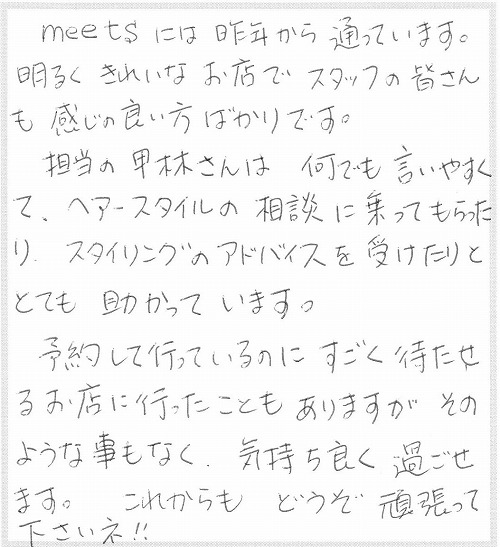 meetsには昨年から通っています。
明るくきれいなお店でスタッフの皆さん
も感じの良い方ばかりです。
担当の甲林さんは何でも言いやすく
て、ヘアースタイルの相談に乗ってもらった
り、スタイリングのアドバイスを受けたりと
とても助かっています。
予約して行っているのにすごく待たせ
るお店に行ったこともありますがその
ような事もなく、気持ち良く過ごせ
ます。これからもどうぞ頑張って
下さいネ!!